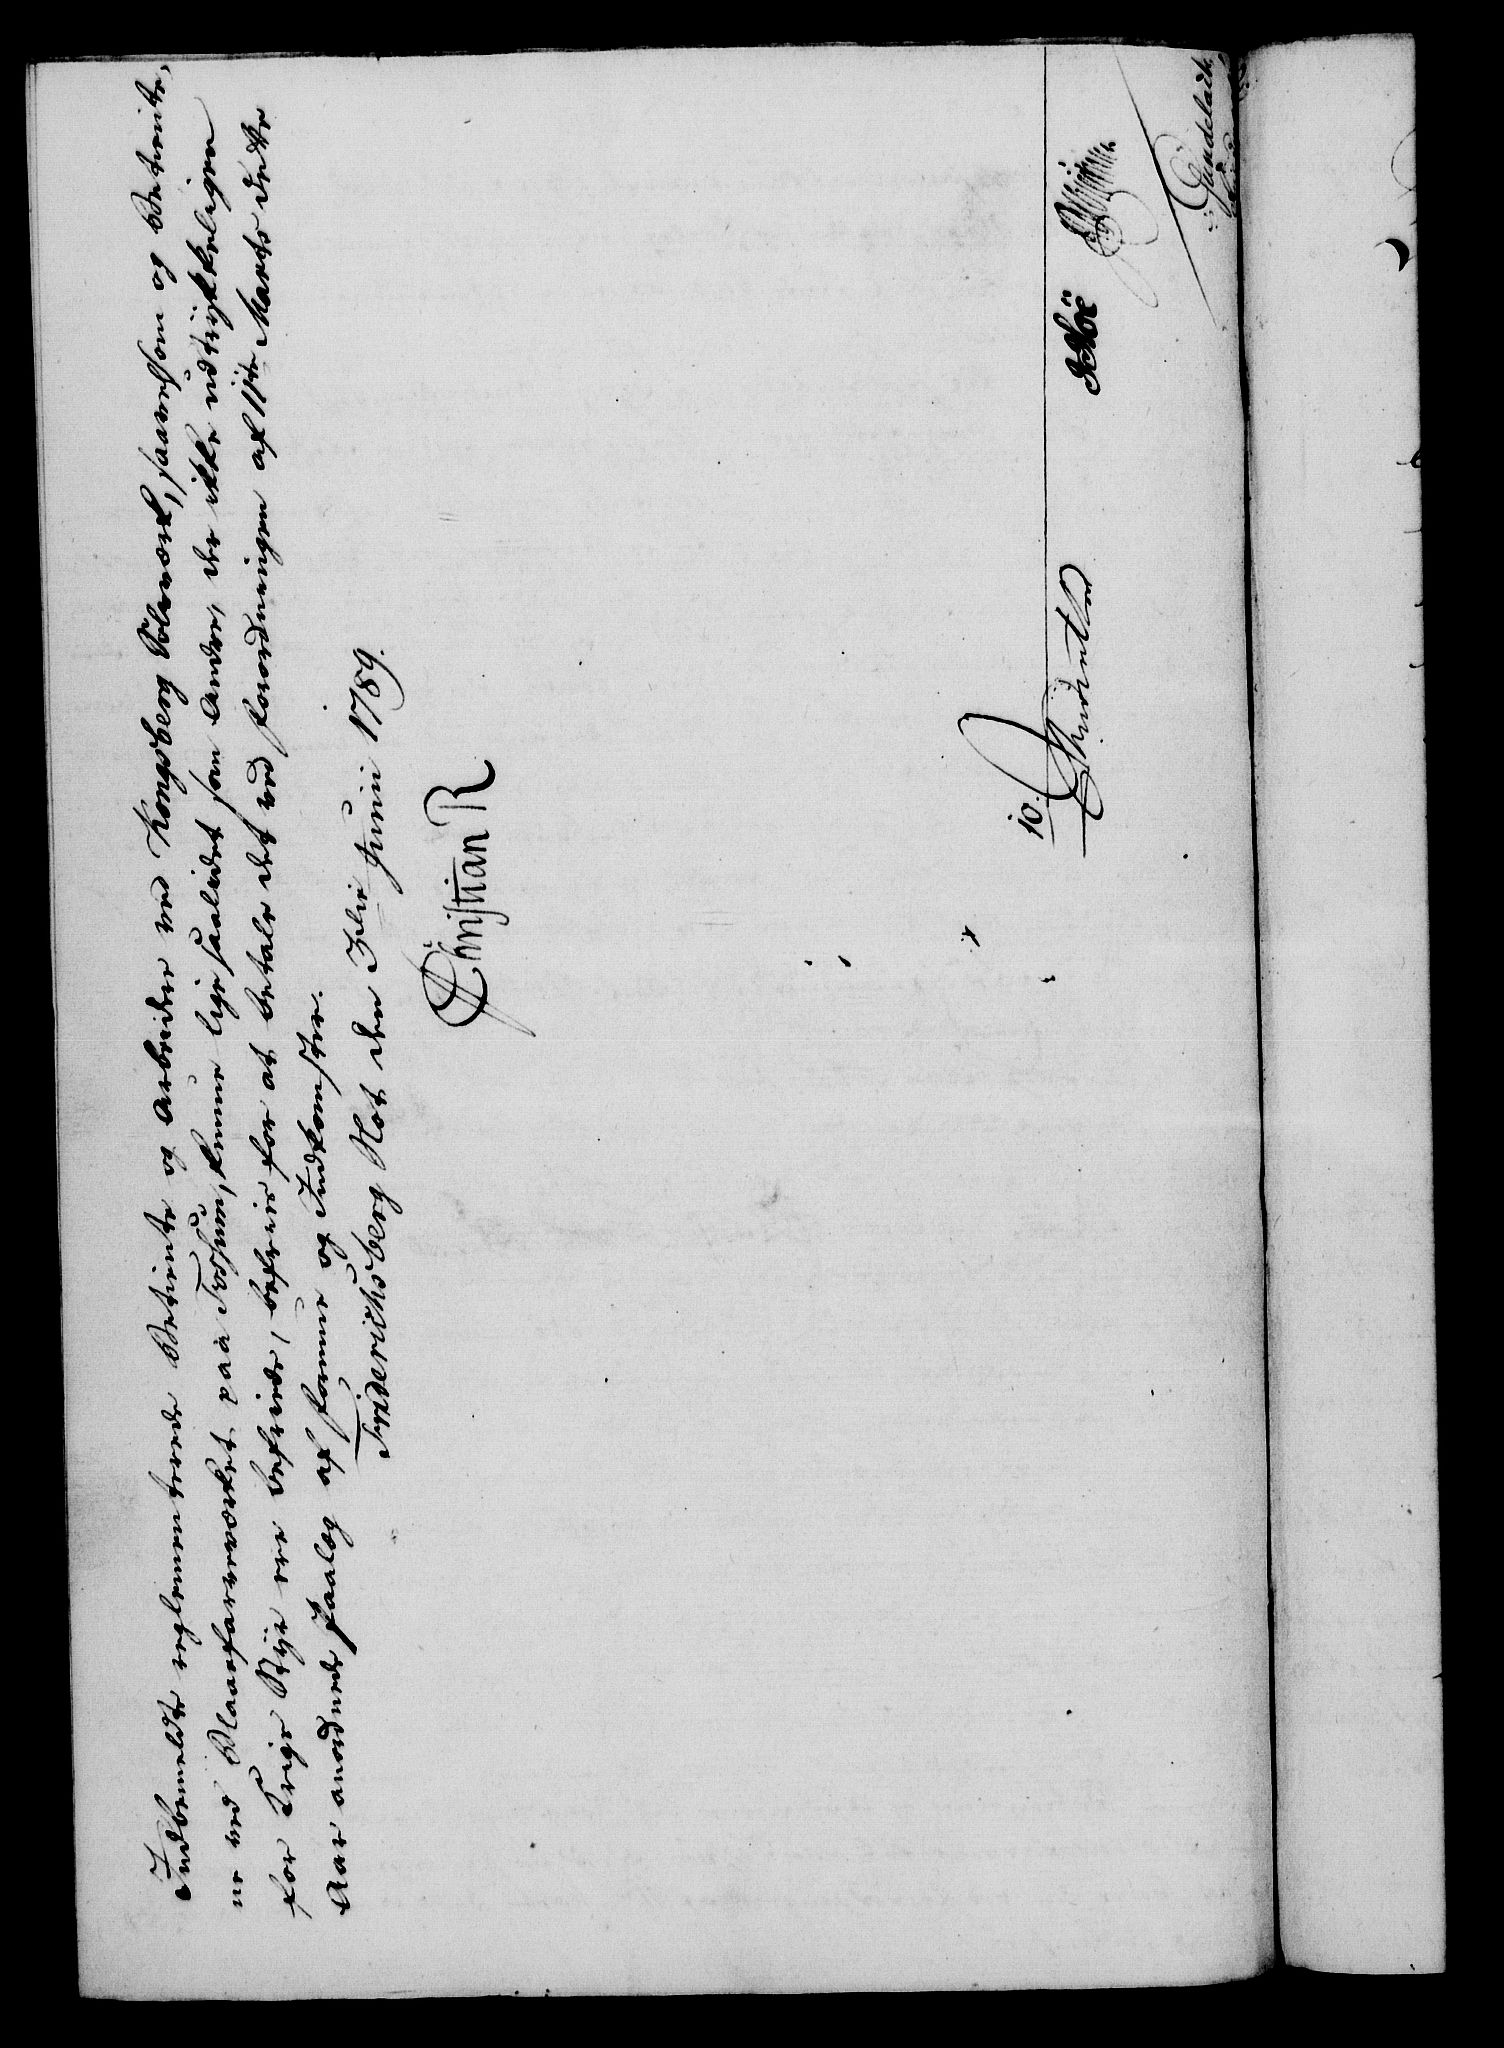 Indbemeldte reglementerede Betiente og Arbeidere ved Kongsberg Sølvværk, saavelsom og Betiente,
ne ved Blaafarveværket paa Fossum, kunne lige saalidet som Andre, der ikke udtrykkeligen
for Krigs Styr ere befriede, befries for at betale det ved Forordningen af 11te Marts dette
Aar anordnede Paalæg af Formue og Indkomster.
Friderichsberg Slot den 3die Junii 1789.
Christian R
10.
Gundelach